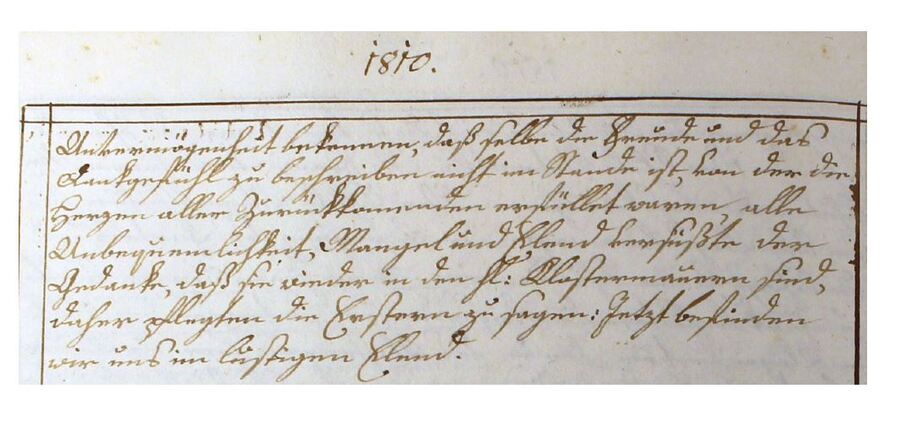 1810.
Unvermögenheit bekennen, daß selbe die Freude und das
Dankgefühl zu beschreiben nicht im Stande ist, von der die
Herzen aller Zurückkomenden erfüllet waren, alle
Unbequemlichkeit, Mangel und Elend versüßte der
Gedanke, daß sie wieder in den hl: Klostermauern sind,
daher pflegten die Erstern zu sagen: Jetzt befinden
wir uns im lustigen Elend.